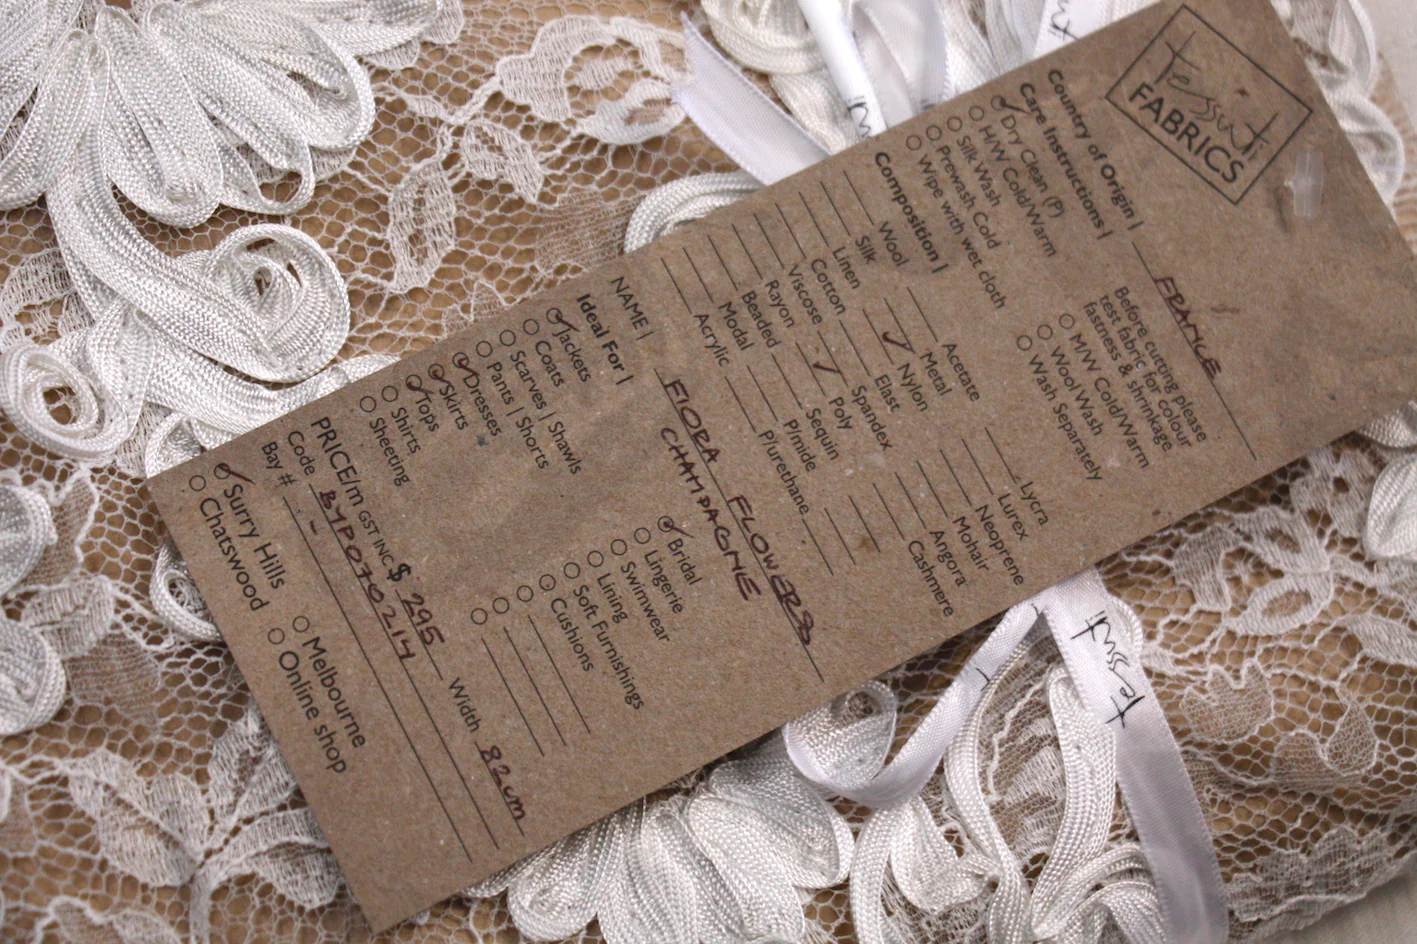 Tessuti
FABRICS
Country of Origin | FRANCE
Care Instructions |
Before cutting please
test fabric for colour
fastness & shrinkage
Dry Clean (P)
H/W Cold/Warm
M/W Cold/Warm
Silk Wash
Wool Wash
Prewash Cold
Wash Separately
Wipe with wet cloth
Composition |
Wool Acetate Lycra
Silk Metal Lurex
Linen Nylon Neoprene
Cotton Elast Mohair
Viscose Spandex Angora
Rayon Poly Cashmere
Beaded Sequin
Modal P/mide
Acrylic P/urethane
NAME | FIORA FLOWERS
CHAMPAGNE
Ideal For |
Jackets Bridal
Coats Lingerie
Scarves | Shawls Swimwear
Pants | Shorts Lining
Dresses Soft Furnishings
Skirts Cushions
Tops
Shirts
Sheeting
PRICE/m GST INC $ 295 Width 82cm
Code BYP070214
Bay # -
Surry Hills Melbourne
Chatswood Online shop
Tessuti